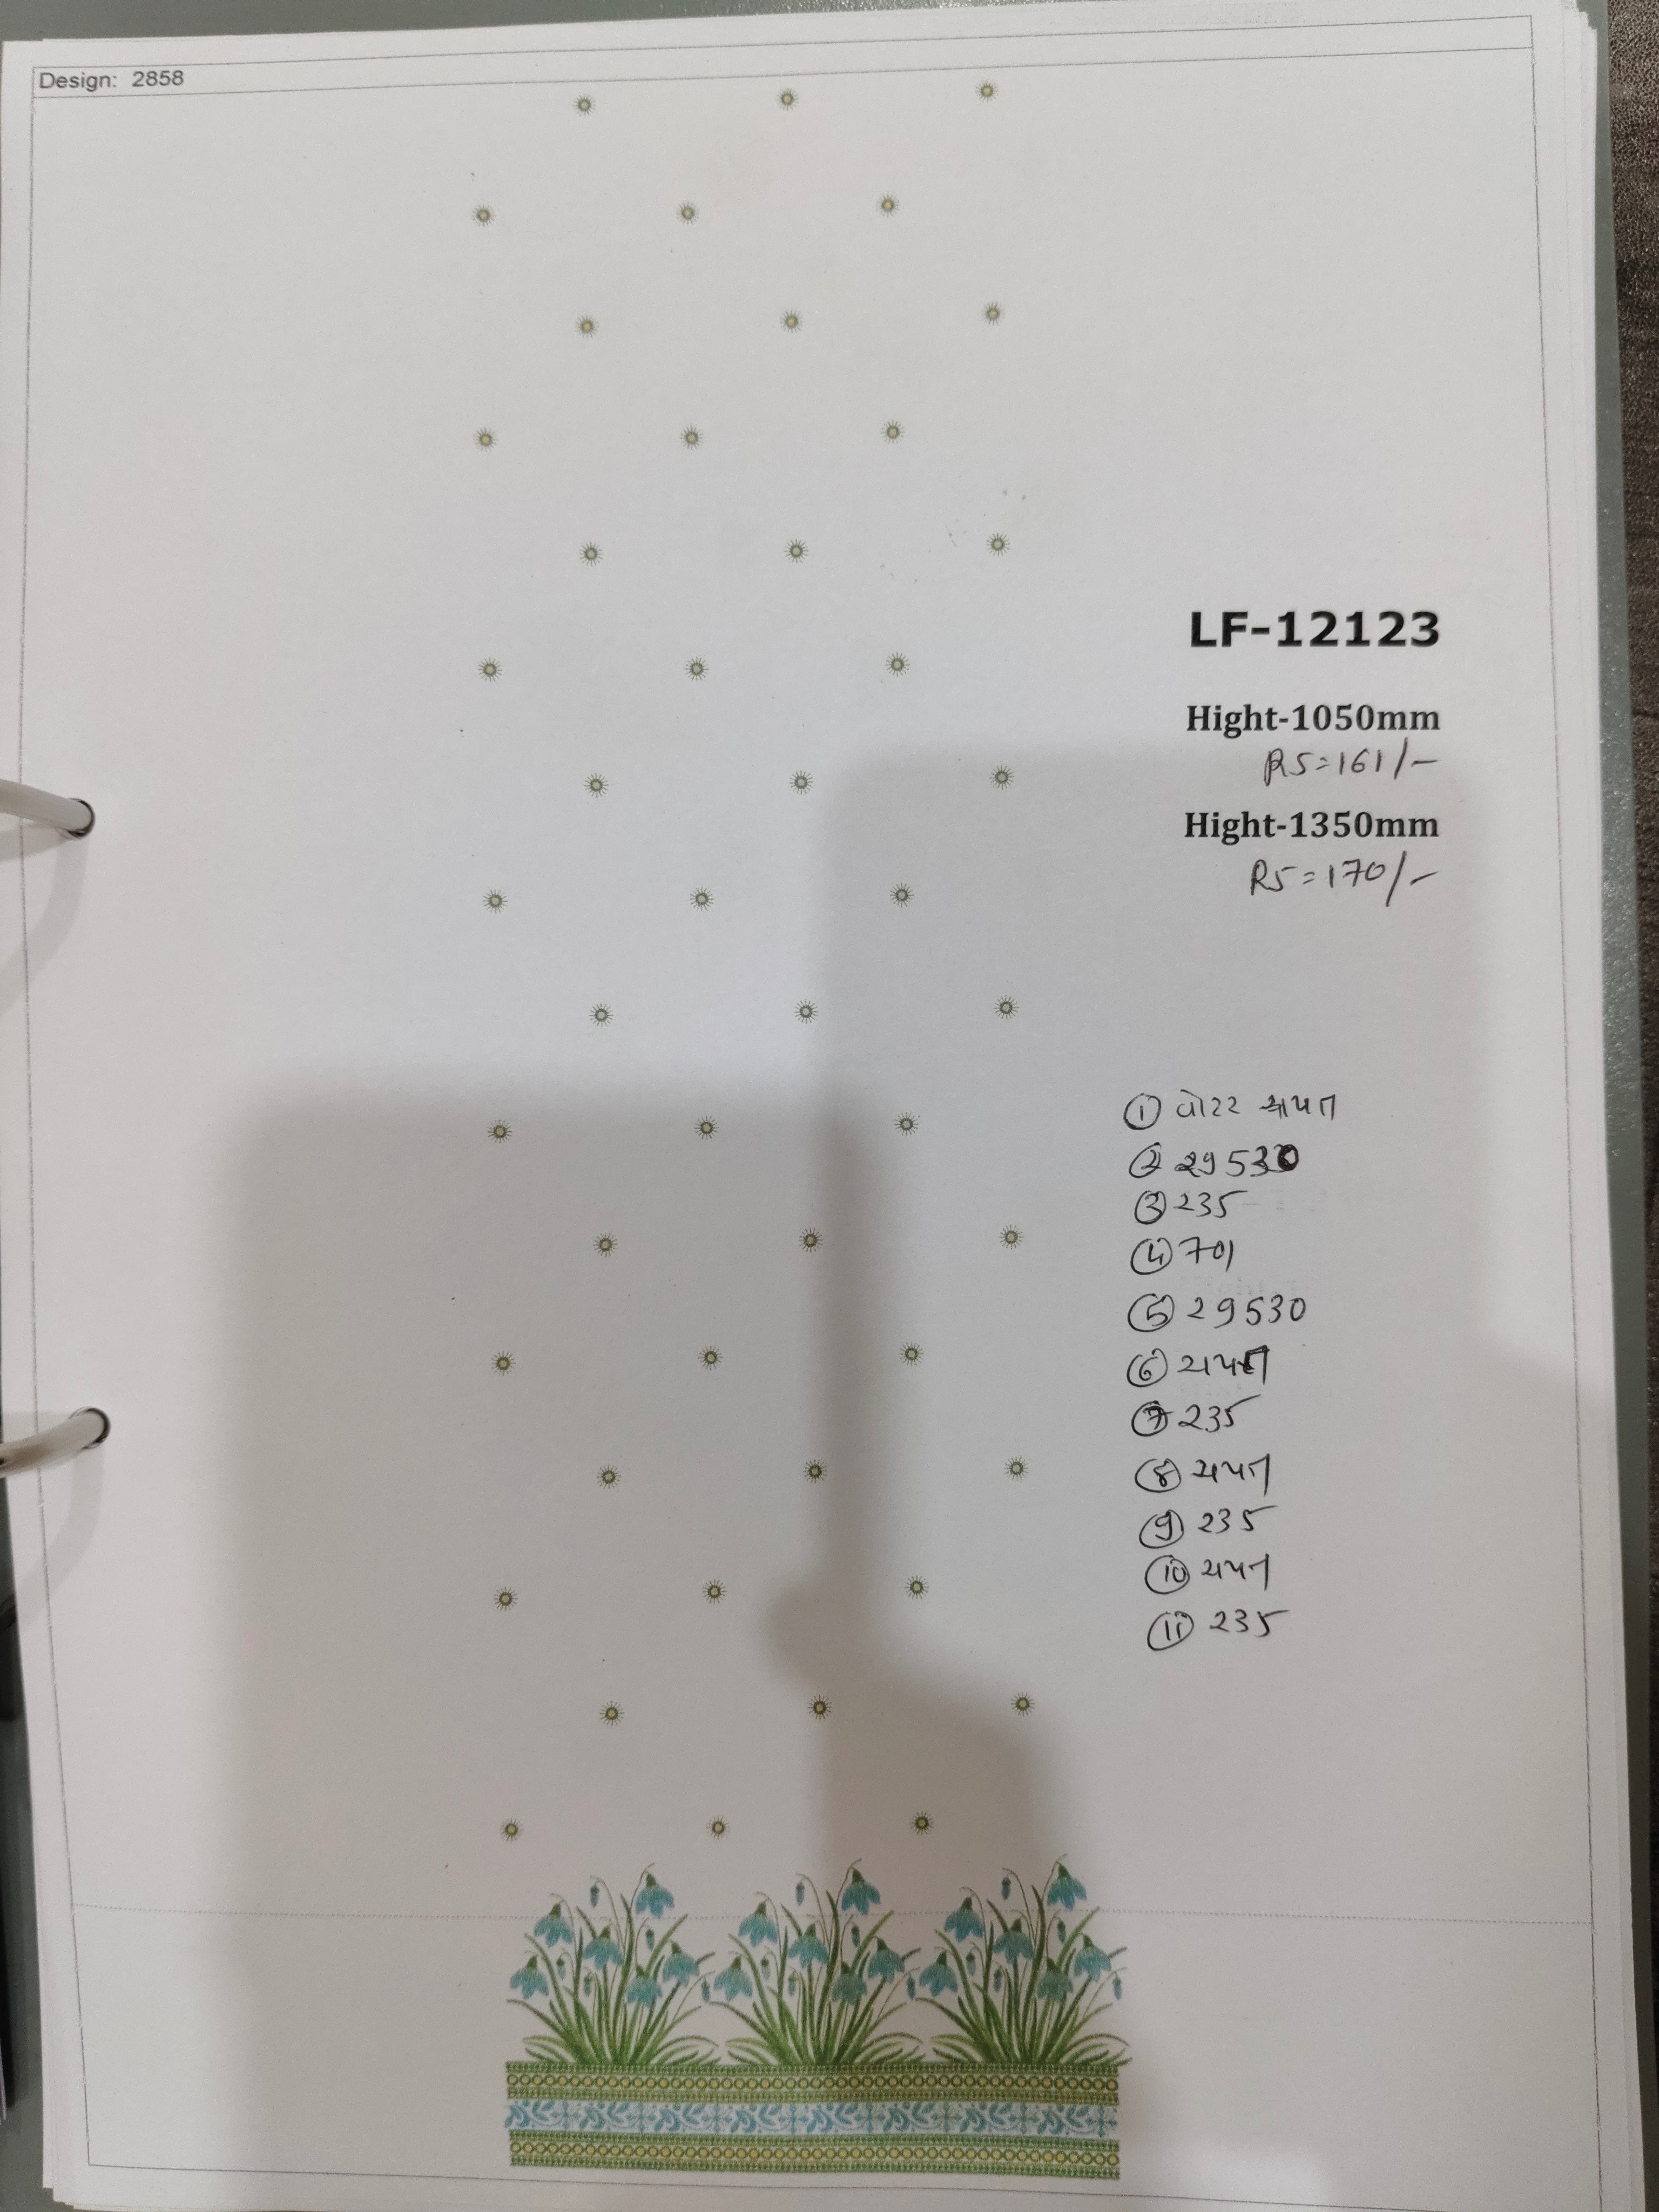 Design: 2858
LF-12123
Hight-1050mm
RS=161/-
Hight-1350mm
RS=170/-
① વોટર
② 29530
③ 235
④ 701
⑤ 29530
⑥
⑦ 235
⑧
⑨ 235
⑩
⑪ 235